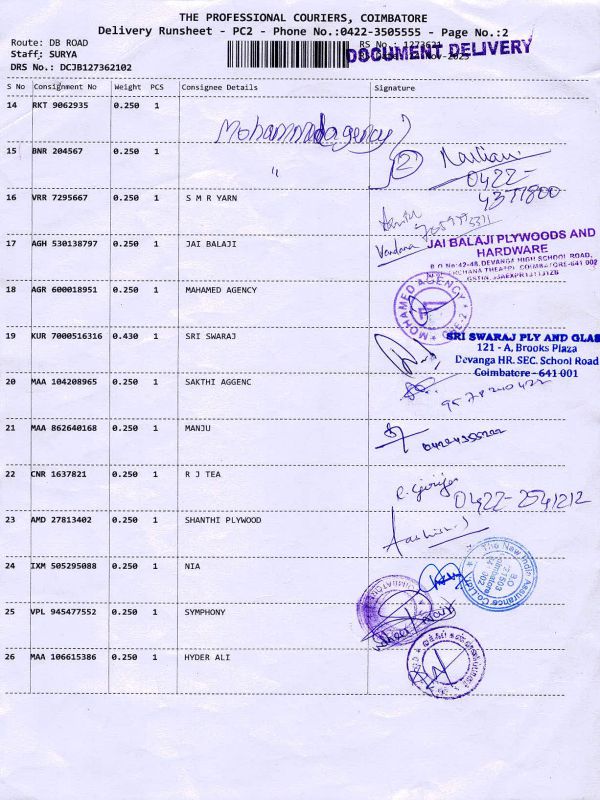 THE PROFESSIONAL COURIERS, COIMBATORE
Delivery Runsheet - PC2 - Phone No.:0422-3505555 - Page No.:2
Route: DB ROAD
RS No.:
DOCUMENT DELIVERY
Staff: SURYA
DRS No.: DCJB127362102
S No Consignment No Weight PCS Consignee Details Signature
14 RKT 9062935 0.250 1
Mohammad agency
15 BNR 204567 0.250 1
"
2
0422-
4377800
16 VRR 7295667 0.250 1 S M R YARN
17 AGH 530138797 0.250 1 JAI BALAJI
Vandana
JAI BALAJI PLYWOODS AND
HARDWARE
DEVANGA HIGH SCHOOL ROAD,
COIMBATORE-641 002
18 AGR 600018951 0.250 1 MAHAMED AGENCY
MOHAMED AGENCY
CBE-2
19 KUR 7000516316 0.430 1 SRI SWARAJ
SRI SWARAJ PLY AND GLAS
121 - A, Brooks Plaza
Devanga HR. SEC. School Road
Coimbatore - 641 001
20 MAA 104208965 0.250 1 SAKTHI AGGENC
21 MAA 862640168 0.250 1 MANJU
22 CNR 1637821 0.250 1 R J TEA
0422-2541212
23 AMD 27813402 0.250 1 SHANTHI PLYWOOD
24 IXM 505295088 0.250 1 NIA
The New India Assurance Co. Ltd.
25 VPL 945477552 0.250 1 SYMPHONY
COIMBATORE
26 MAA 106615386 0.250 1 HYDER ALI